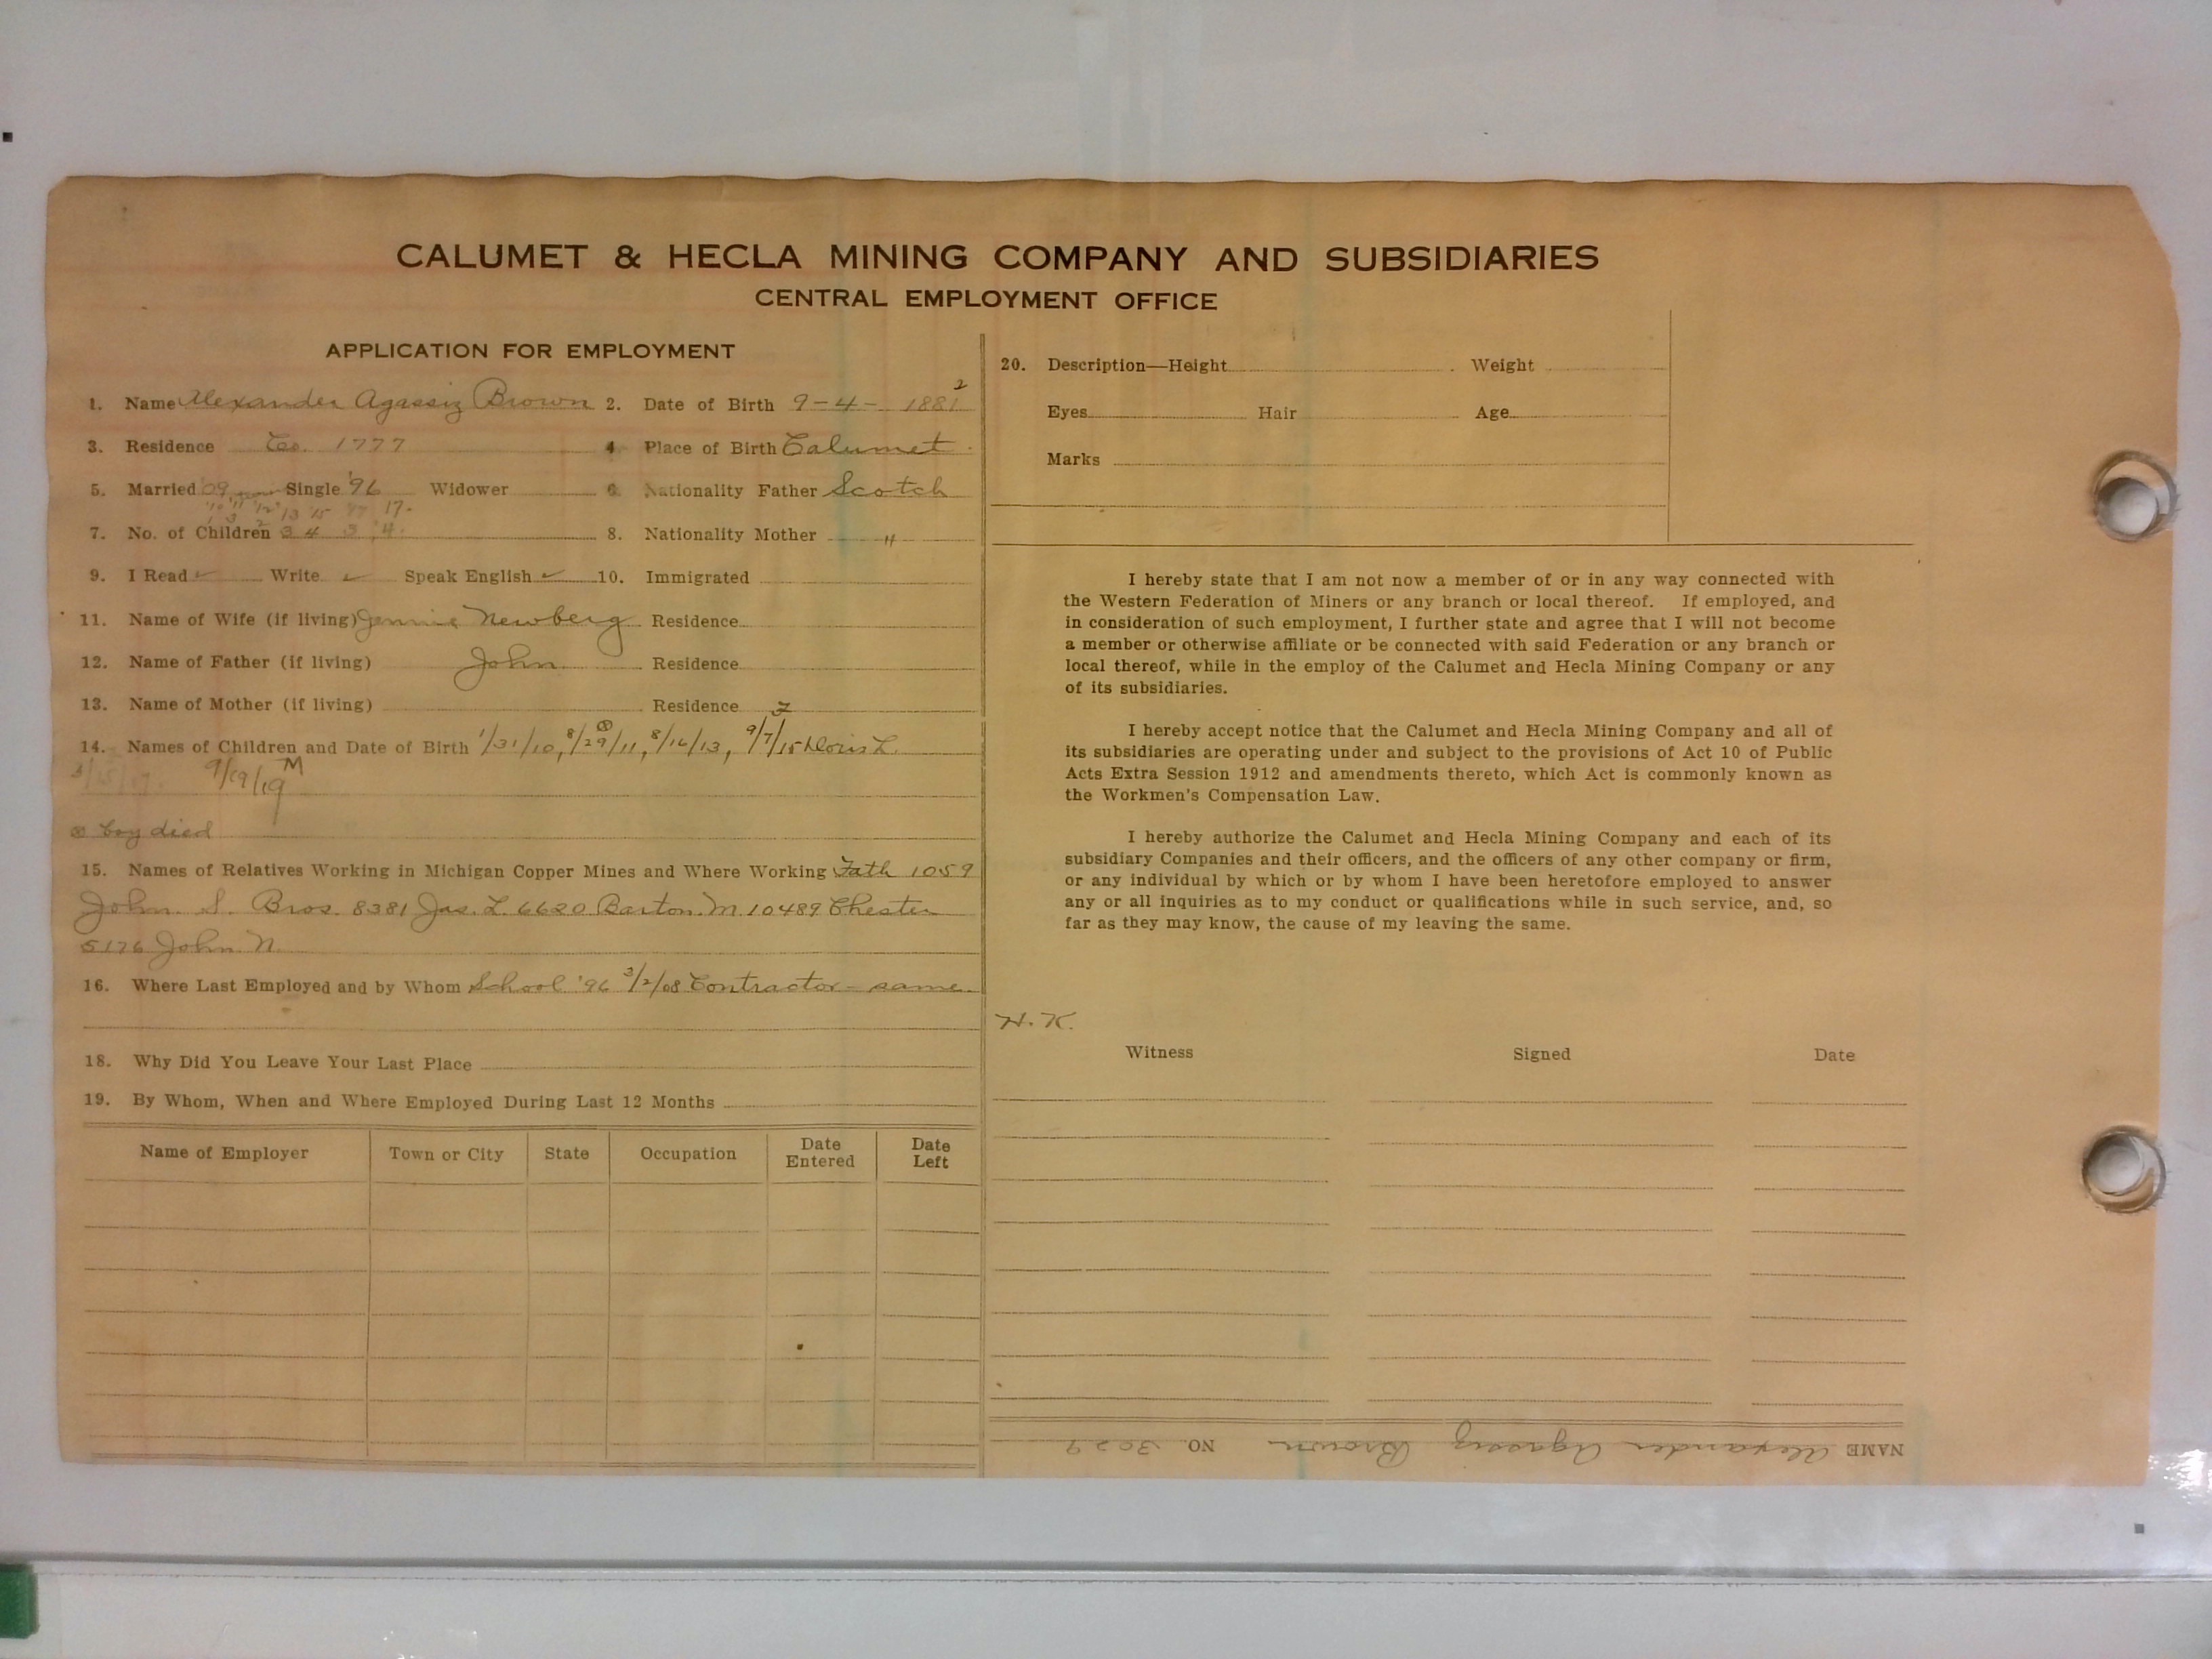 CALUMET & HECLA MINING COMPANY AND SUBSIDIARIES
CENTRAL EMPLOYMENT OFFICE
APPLICATION FOR EMPLOYMENT
1. Name Alexander Agassiz Brown 2. Date of Birth 9-4- 1881 2
3. Residence Co. 1777 4 Place of Birth Calumet
5. Married '09 Single '96 Widower 6. Nationality Father Scotch
'10 '11 '12 '13 '15 17
7. No. of Children 3 4 3 4 8. Nationality Mother "
9. I Read ✓ Write ✓ Speak English ✓ 10. Immigrated
11. Name of Wife (if living) Jennie Newberg Residence
12. Name of Father (if living) John Residence
13. Name of Mother (if living) Residence
14. Names of Children and Date of Birth 1/31/10, 8/29/11, 8/16/13, 9/7/15 Doris L.
3/15/17. 9/19/19 M
⊗ boy died
15. Names of Relatives Working in Michigan Copper Mines and Where Working Fath 1059
John. S. Bros. 8381 Jas. L. 6620 Barton. M. 10489 Chester
5176 John N.
16. Where Last Employed and by Whom School '96 3/2/08 Contractor - same.
18. Why Did You Leave Your Last Place
19. By Whom, When and Where Employed During Last 12 Months
Name of Employer Town or City State Occupation Date Entered Date Left
20. Description—Height Weight
Eyes Hair Age
Marks
I hereby state that I am not now a member of or in any way connected with
the Western Federation of Miners or any branch or local thereof. If employed, and
in consideration of such employment, I further state and agree that I will not become
a member or otherwise affiliate or be connected with said Federation or any branch or
local thereof, while in the employ of the Calumet and Hecla Mining Company or any
of its subsidiaries.
I hereby accept notice that the Calumet and Hecla Mining Company and all of
its subsidiaries are operating under and subject to the provisions of Act 10 of Public
Acts Extra Session 1912 and amendments thereto, which Act is commonly known as
the Workmen's Compensation Law.
I hereby authorize the Calumet and Hecla Mining Company and each of its
subsidiary Companies and their officers, and the officers of any other company or firm,
or any individual by which or by whom I have been heretofore employed to answer
any or all inquiries as to my conduct or qualifications while in such service, and, so
far as they may know, the cause of my leaving the same.
H. K.
Witness Signed Date
NAME Alexander Agassiz Brown NO. 3029